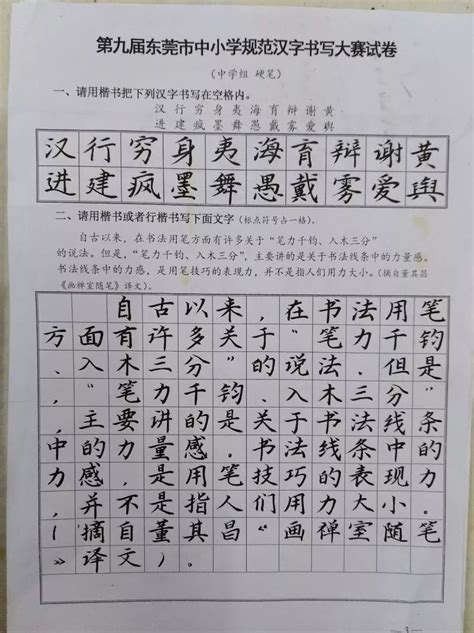 第九届东莞市中小学规范汉字书写大赛试卷
（中学组 硬笔）
一、请用楷书把下列汉字书写在空格内。
汉 行 穷 身 夷 海 育 辩 谢 黄
进 建 疯 墨 舞 愚 戴 雾 爱 舆
汉行穷身夷海育辩谢黄
进建疯墨舞愚戴雾爱舆
二、请用楷书或者行楷书写下面文字（标点符号占一格）.
自古以来，在书法用笔方面有许多关于“笔力千钧、入木三分”
的说法。但是，“笔力千钧、入木三分”，主要讲的是关于书法线条中的力量感。
书法线条中的力感，是用笔技巧的表现力，并不是指人们用力大小。（摘自董其昌
《画禅室随笔》译文）.
自古以来，在书法用笔
方面有许多关于“笔力千钧
、入木三分”的说法.但是
，“笔力千钧、入木三分”
，主要讲的是关于书法线条
中的力量感.书法线条中的
力感，是用笔技巧的表现力
，并不是指人们用力大小.
（摘自董其昌“画禅室随笔
》译文）.
—3—